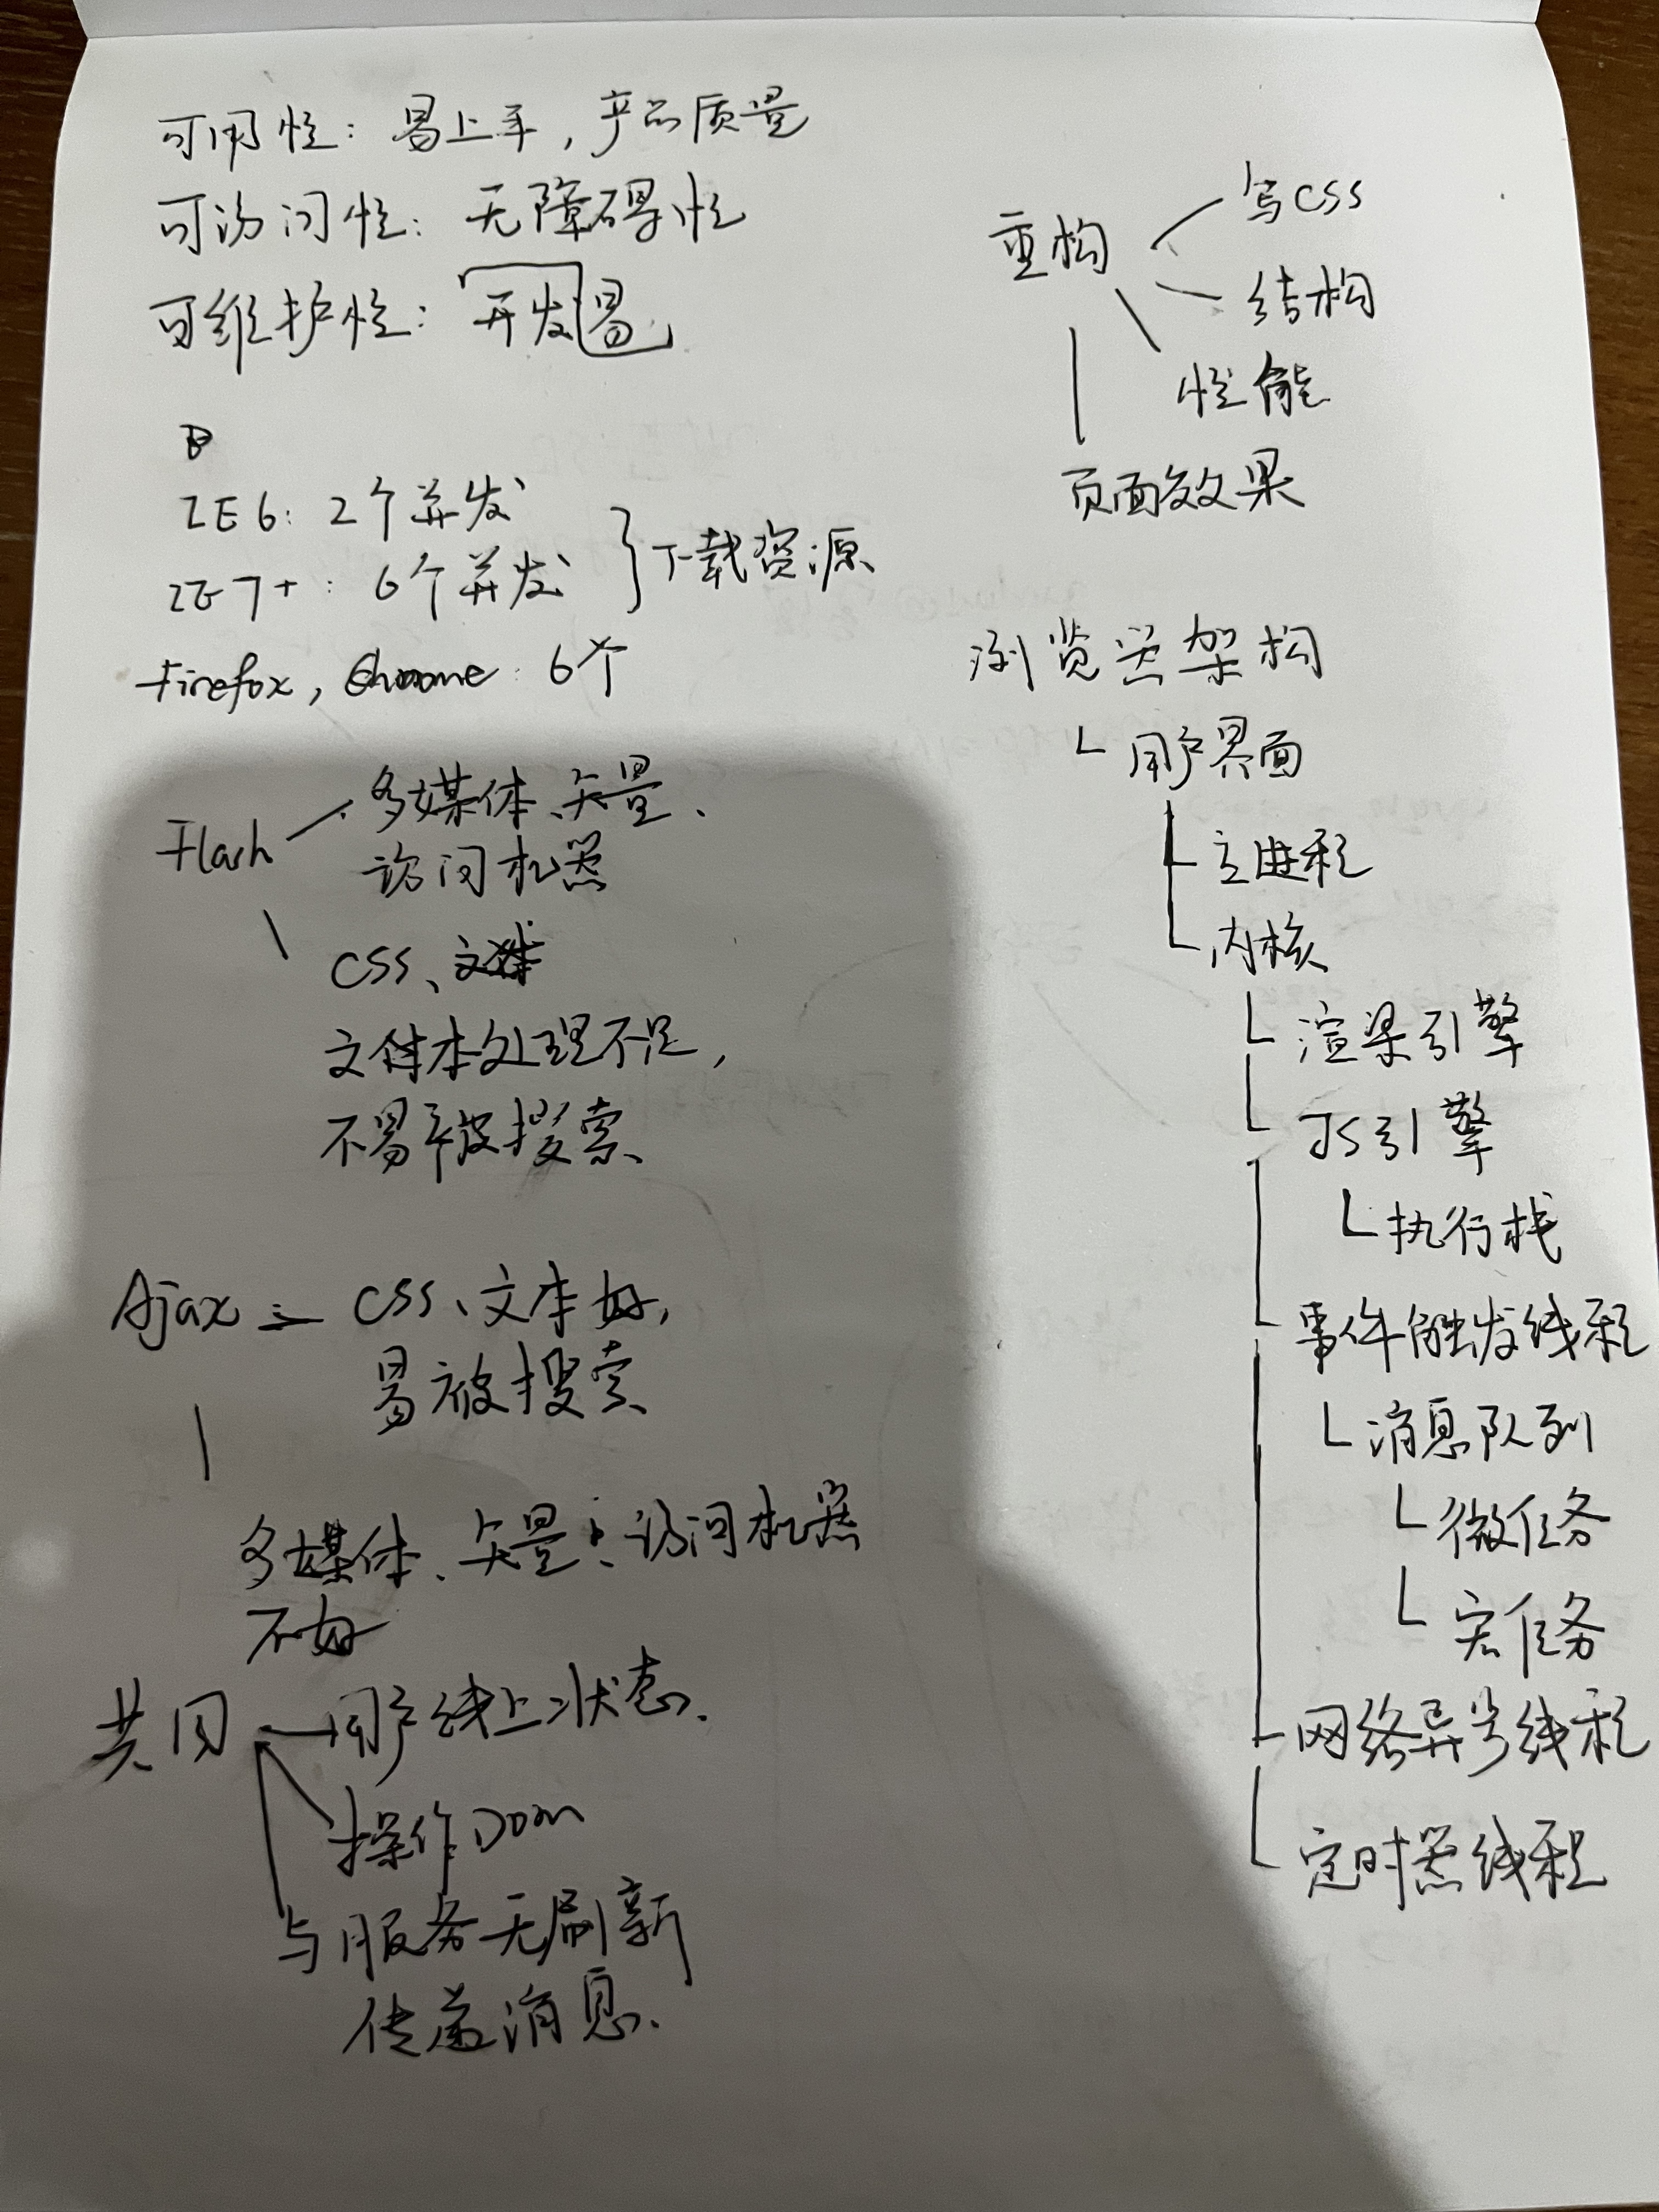 可用性：易上手，产品质量
可访问性：无障碍性
可维护性：开发易
IE6：2个并发
IE7+：6个并发
下载资源
Firefox，Chrome：6个
Flash
多媒体、矢量、
访问机器
CSS、
文本处理不足，
不易被搜索、
Ajax
CSS、文本好，
易被搜索
多媒体、矢量、访问机器
不好
共同
用户线上状态、
操作Dom
与服务无刷新
传递消息、
重构
写CSS
结构
性能
页面效果
浏览器架构
用户界面
主进程
内核
渲染引擎
JS引擎
执行栈
事件触发线程
消息队列
微任务
宏任务
网络异步线程
定时器线程